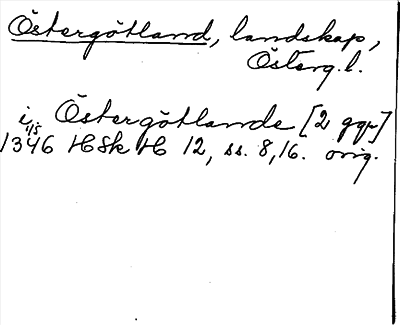 Östergötland, landskap,
Österg. l.
i Östergötlande [2 ggr]
1/5
1346 HSk H 12, ss. 8, 16. orig.